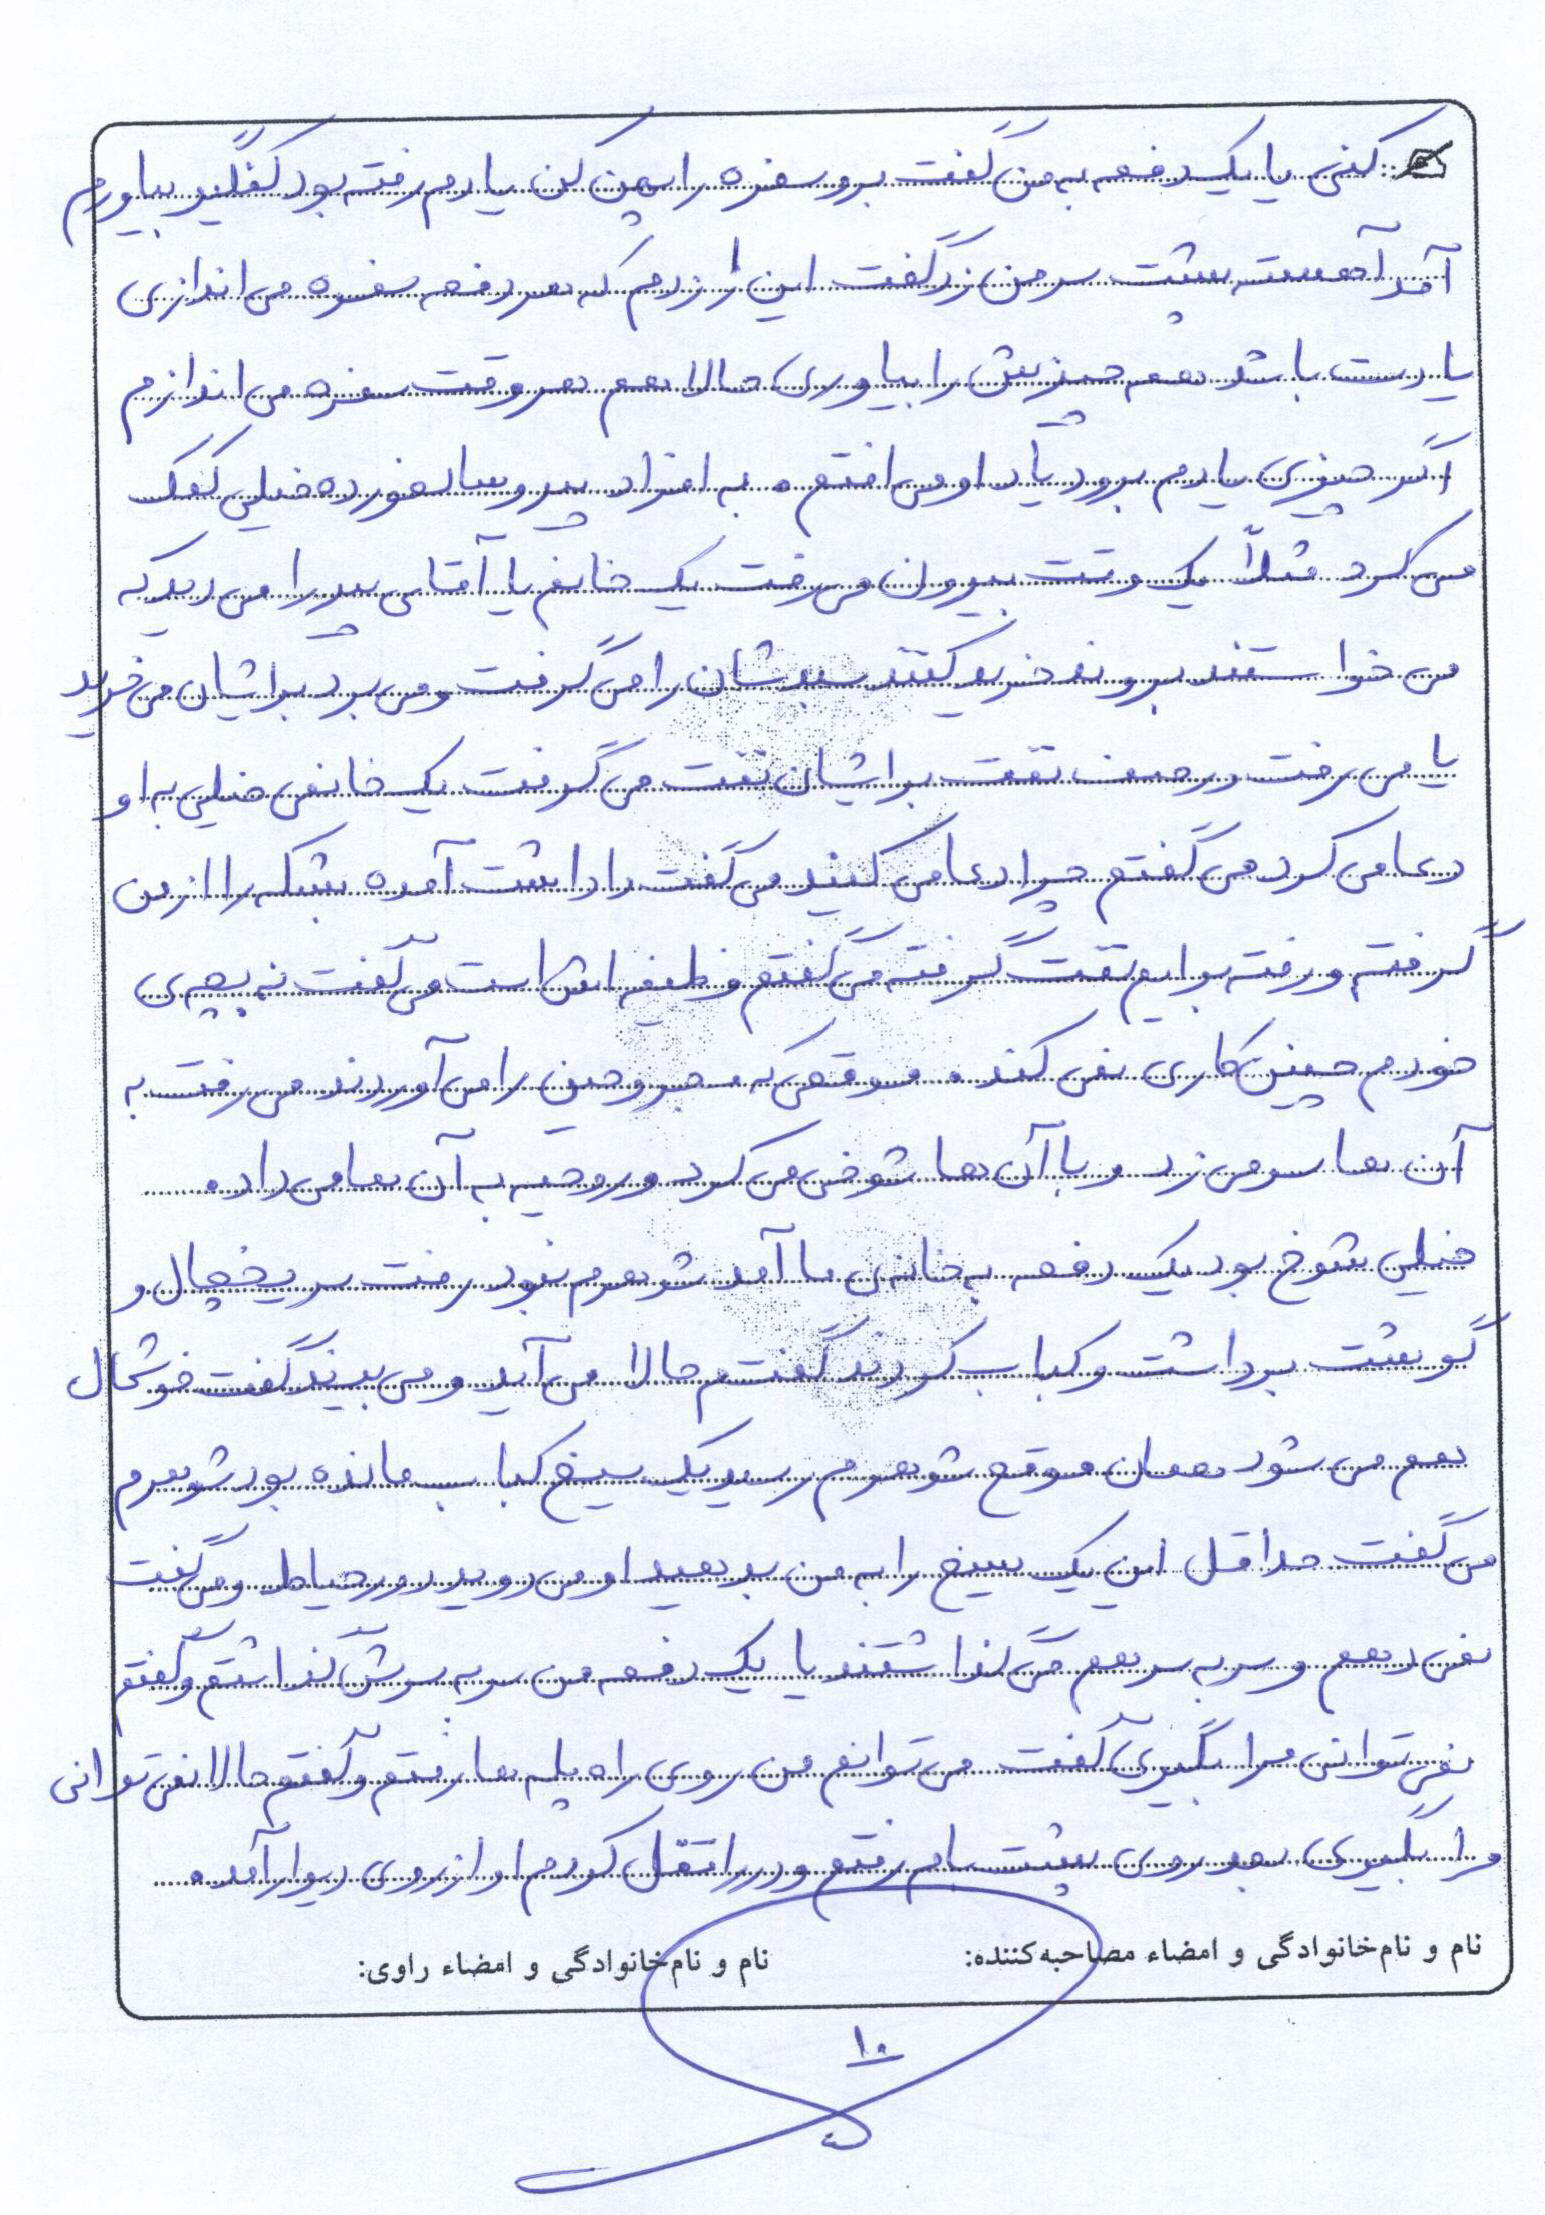 کنی یا یک دفعه به من گفت برو سفره را پهن کن یادم رفته بود کفگیر بیاورم
آمد آهسته پشت سر من زد گفت این را زدم که هر دفعه سفره می اندازی
یادت باشد همه چیزش را بیاوری حالا هم هر وقت سفره می اندازم
اگر چیزی یادم برود یاد او می افتم. به افراد پیر و سالخورده خیلی کمک
می کرد مثلاً یک وقت بیرون می رفت یک خانم یا آقای پیر را می دید که
می خواستند بروند خرید کنند سبدشان را می گرفت و می برد برایشان می خرید
یا می رفت در صف نفت برایشان نفت می گرفت یک خانمی خیلی به او
دعا می کرد می گفتم چرا دعا می کنید می گفت داداشت آمده بشکه را از من
گرفته و رفته برایم نفت گرفته می گفتم وظیفه اش است می گفت نه بچه ی
خودم چنین کاری نمی کند. موقعی که مجروحین را می آوردند می رفت به
آن ها سر می زد و با آن ها شوخی می کرد و روحیه به آن ها می داد.
خیلی شوخ بود یک دفعه به خانه ی ما آمد شوهرم نبود رفت سر یخچال و
گوشت برداشت و کباب کردند گفتم حالا می آید و می بیند گفت خوشحال
هم می شود همان موقع شوهرم رسید یک سیخ کباب مانده بود شوهرم
می گفت حداقل این یک سیخ را به من بدهید او می دوید دور حیاط و می گفت
نمی دهم و سر به سر هم می گذاشتند یا یک دفعه من سر به سرش گذاشتم و گفتم
نمی توانی مرا بگیری گفت می توانم من روی راه پله ها رفتم و گفتم حالا نمی توانی
مرا بگیری بعد روی پشت بام رفتم و در را قفل کردم او از روی دیوار آمد.
نام و نام‌خانوادگی و امضاء مصاحبه‌کننده: نام و نام‌خانوادگی و امضاء راوی:
۱۰